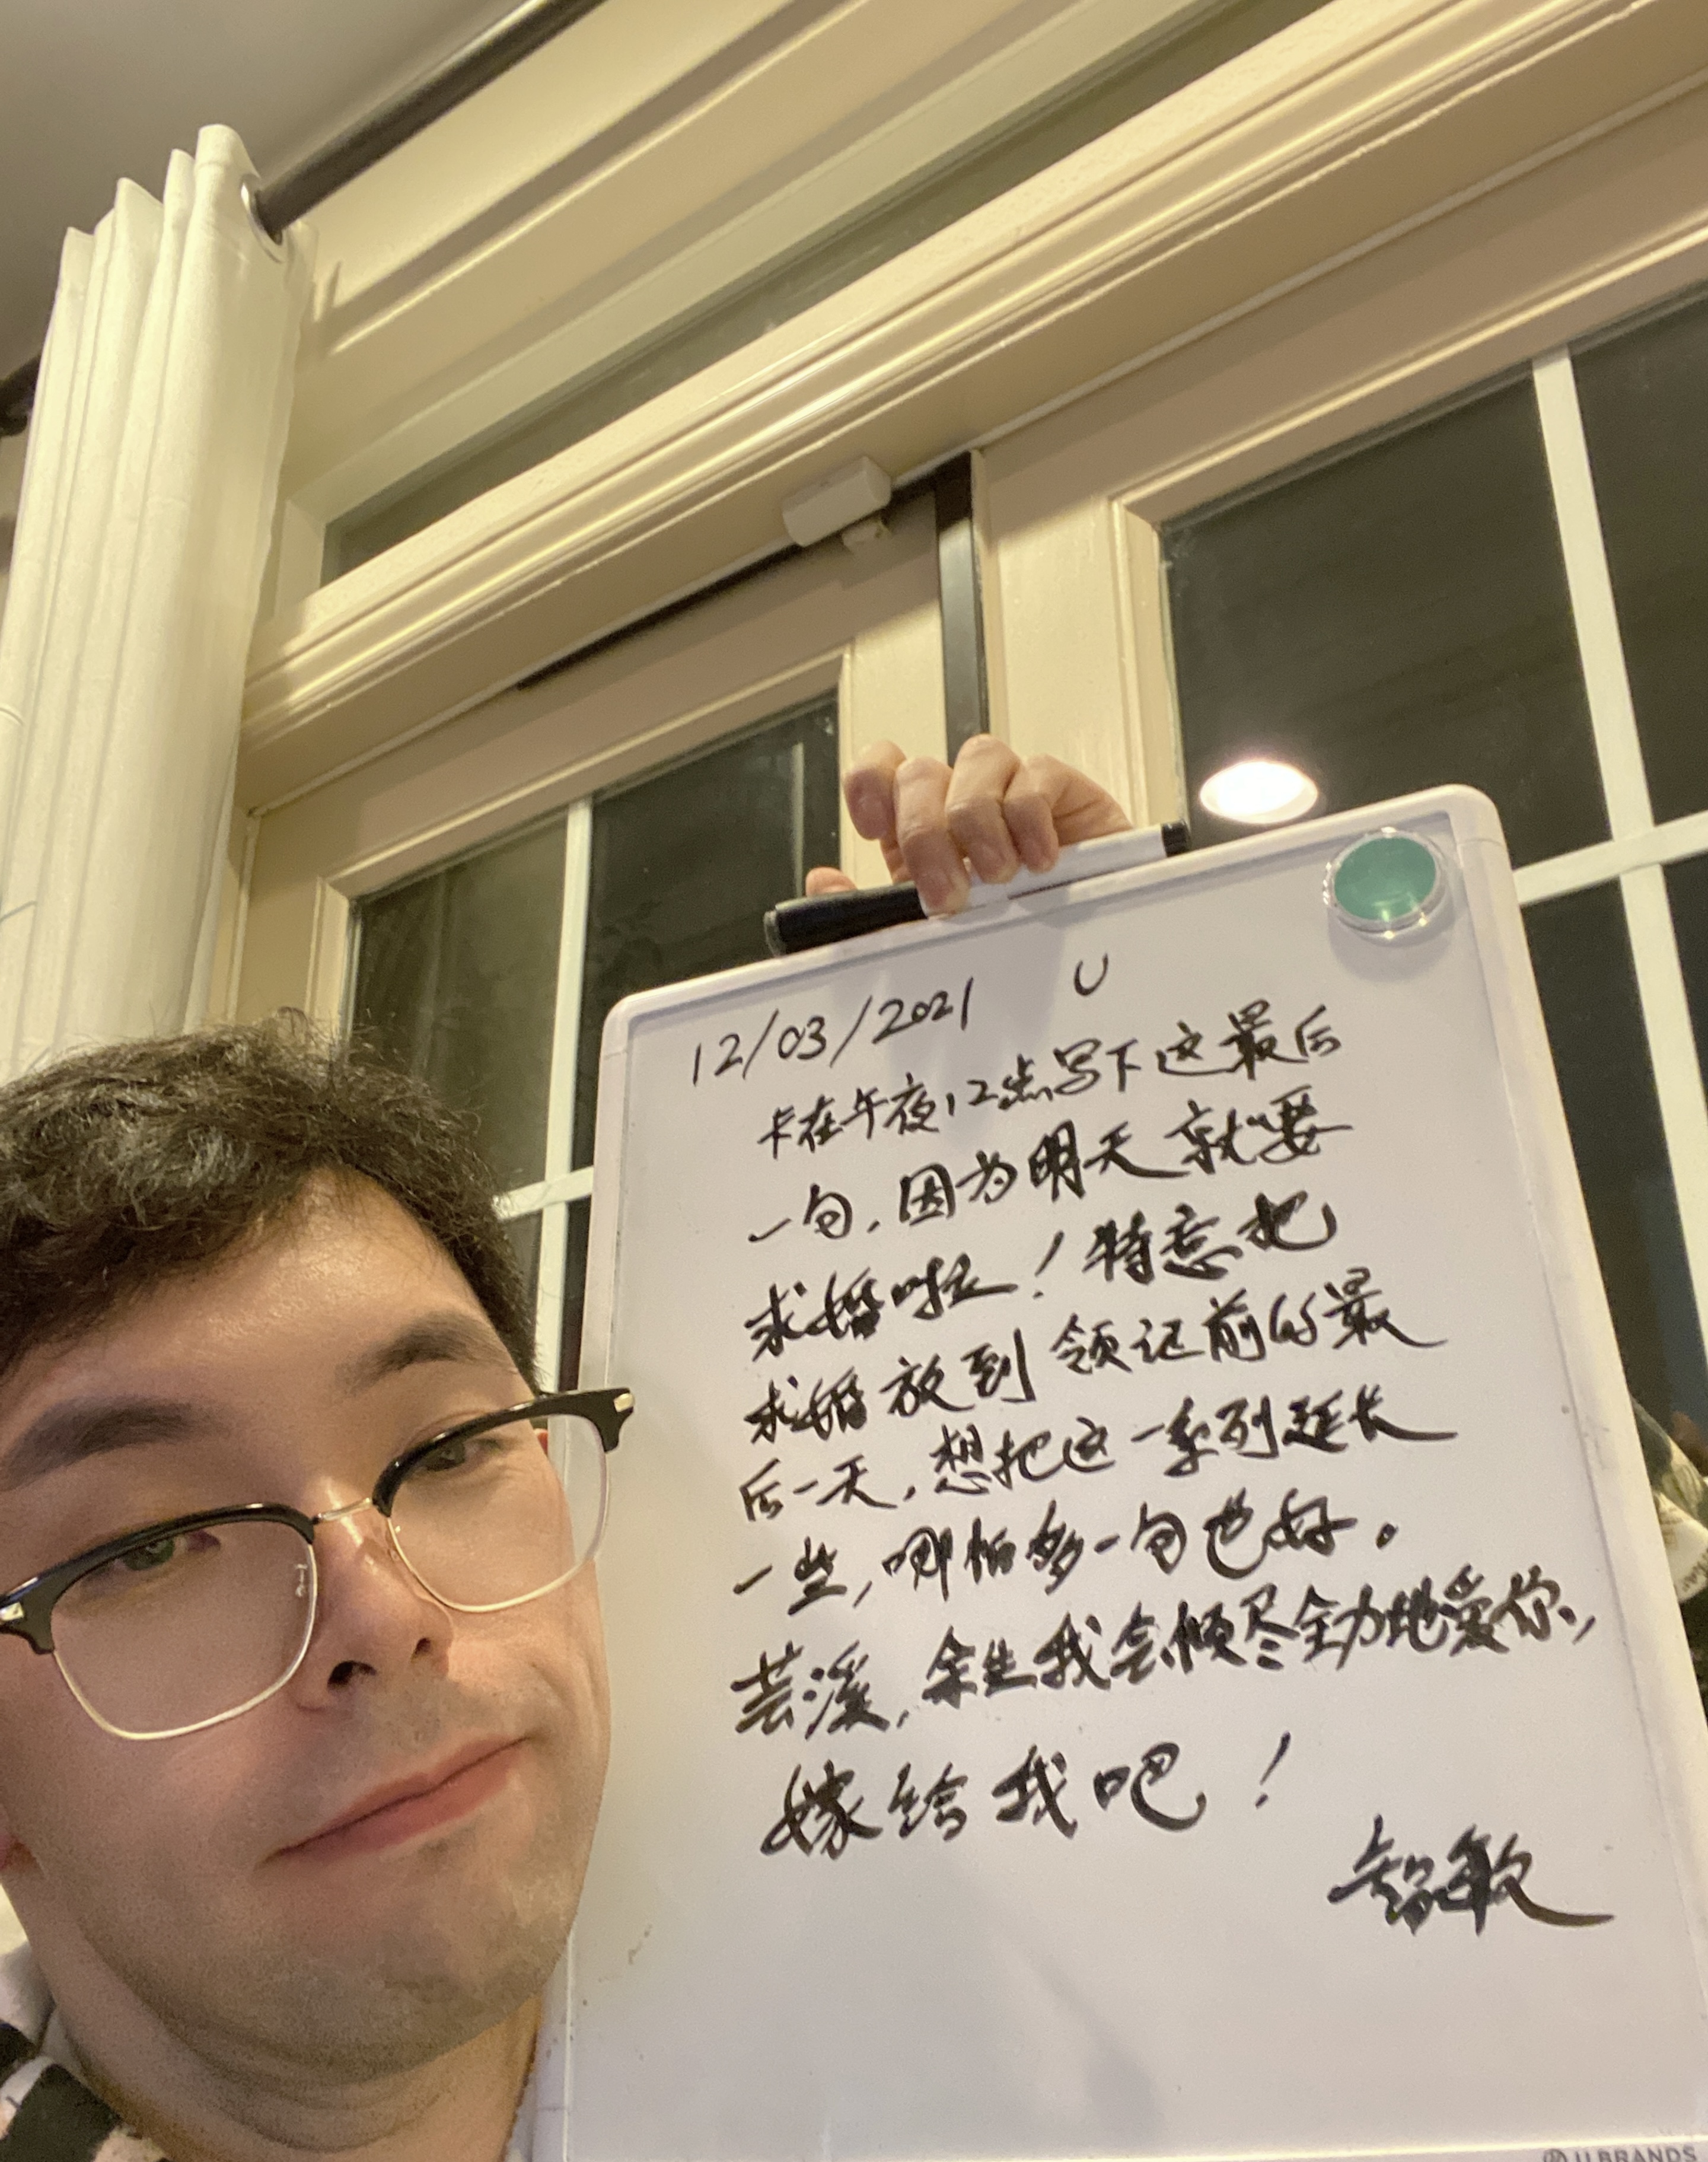 12/03/2021 U
卡在午夜12点写下这最后
一句,因为明天就要
求婚啦!特意把
求婚放到领证前的最
后一天,想把这一系列延长
一些,哪怕多一句也好。
芸溪,余生我会倾尽全力地爱你,
嫁给我吧!
智敏
U BRANDS